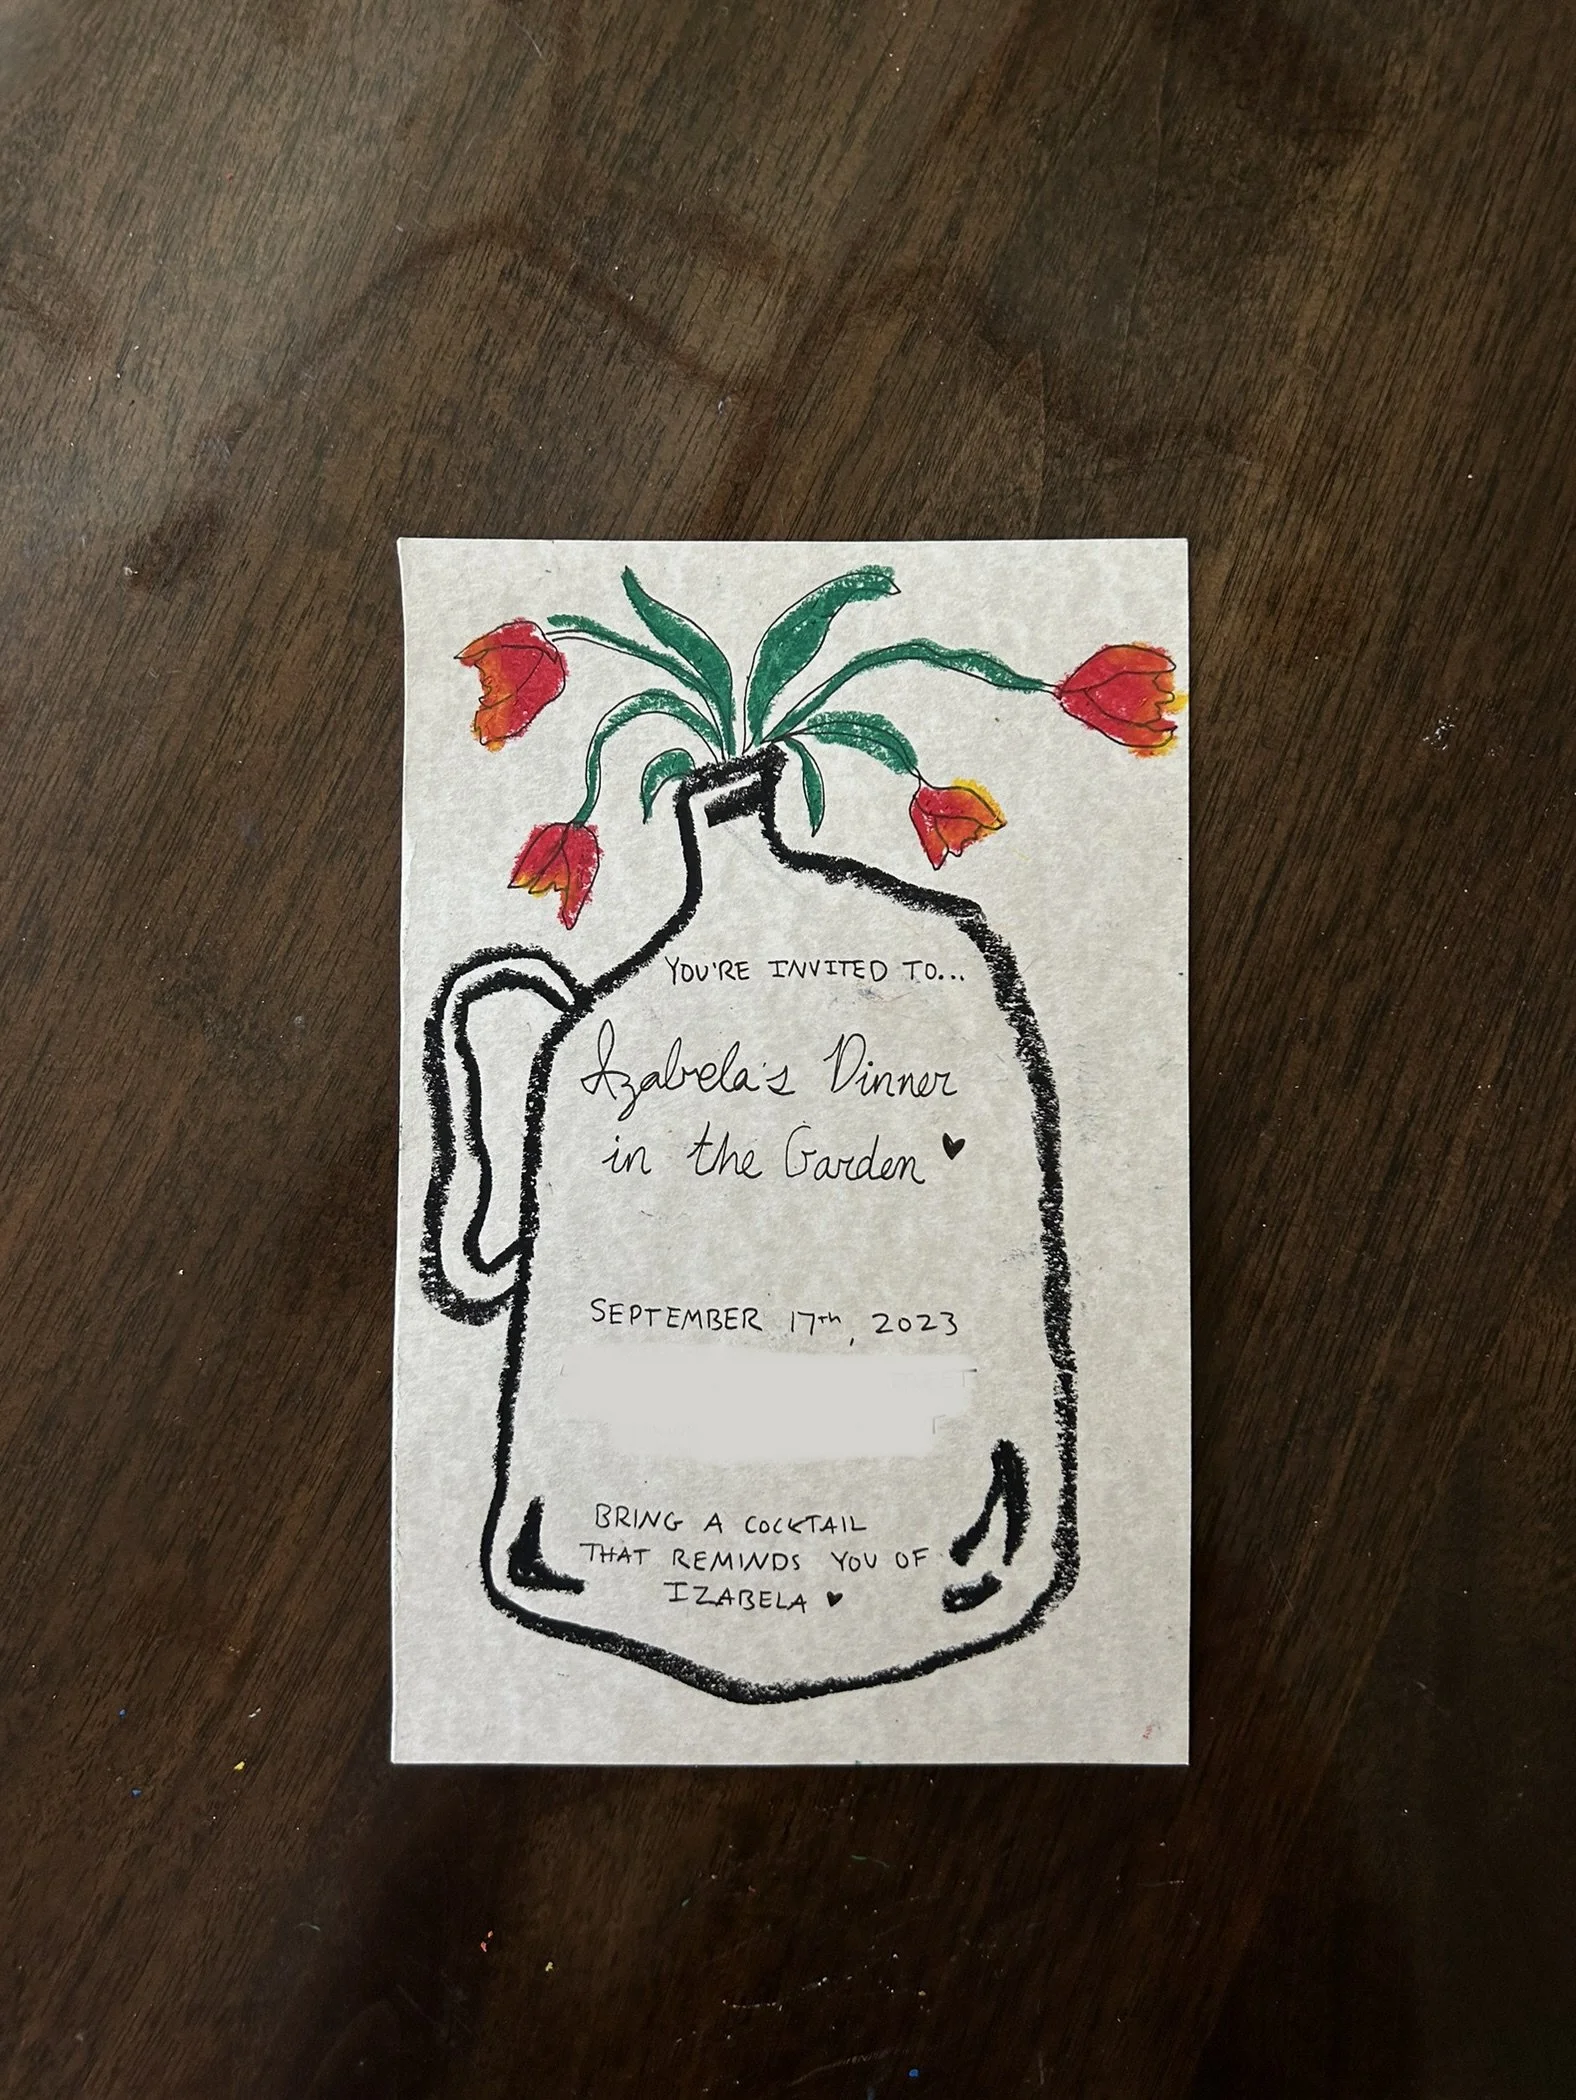 YOU'RE INVITED TO...
Izabela's Dinner
in the Garden ♥
SEPTEMBER 17th, 2023
BRING A COCKTAIL
THAT REMINDS YOU OF
IZABELA ♥